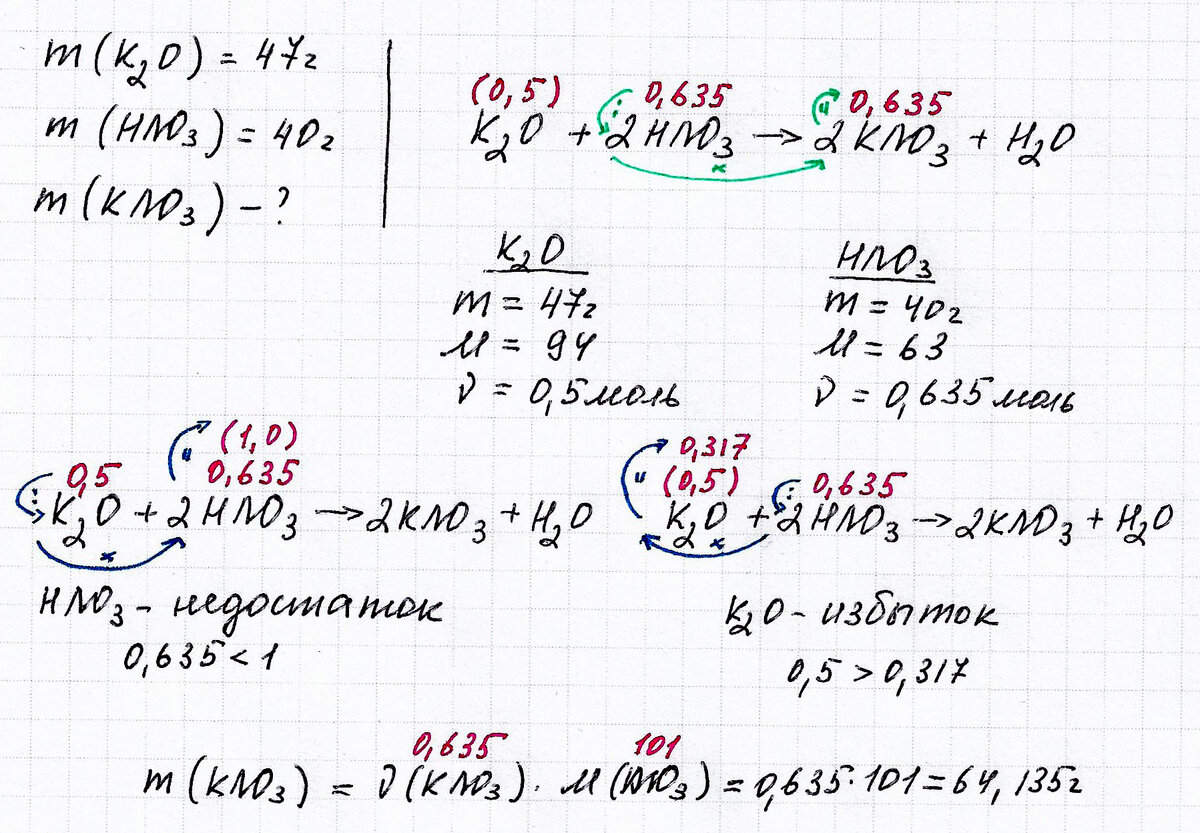 m(K₂O) = 47г
m(HNO₃) = 40г
m(KNO₃) – ?
(0,5) : 0,635 " 0,635
K₂O + 2HNO₃ → 2KNO₃ + H₂O
×
K₂O
m = 47г
M = 94
ν = 0,5 моль
HNO₃
m = 40г
M = 63
ν = 0,635 моль
" (1,0)
: 0,5 0,635
K₂O + 2HNO₃ → 2KNO₃ + H₂O
×
HNO₃ – недостаток
0,635 < 1
0,317
" (0,5) : 0,635
K₂O + 2HNO₃ → 2KNO₃ + H₂O
×
K₂O – избыток
0,5 > 0,317
0,635 101
m(KNO₃) = ν(KNO₃) · M(KNO₃) = 0,635 · 101 = 64,135г